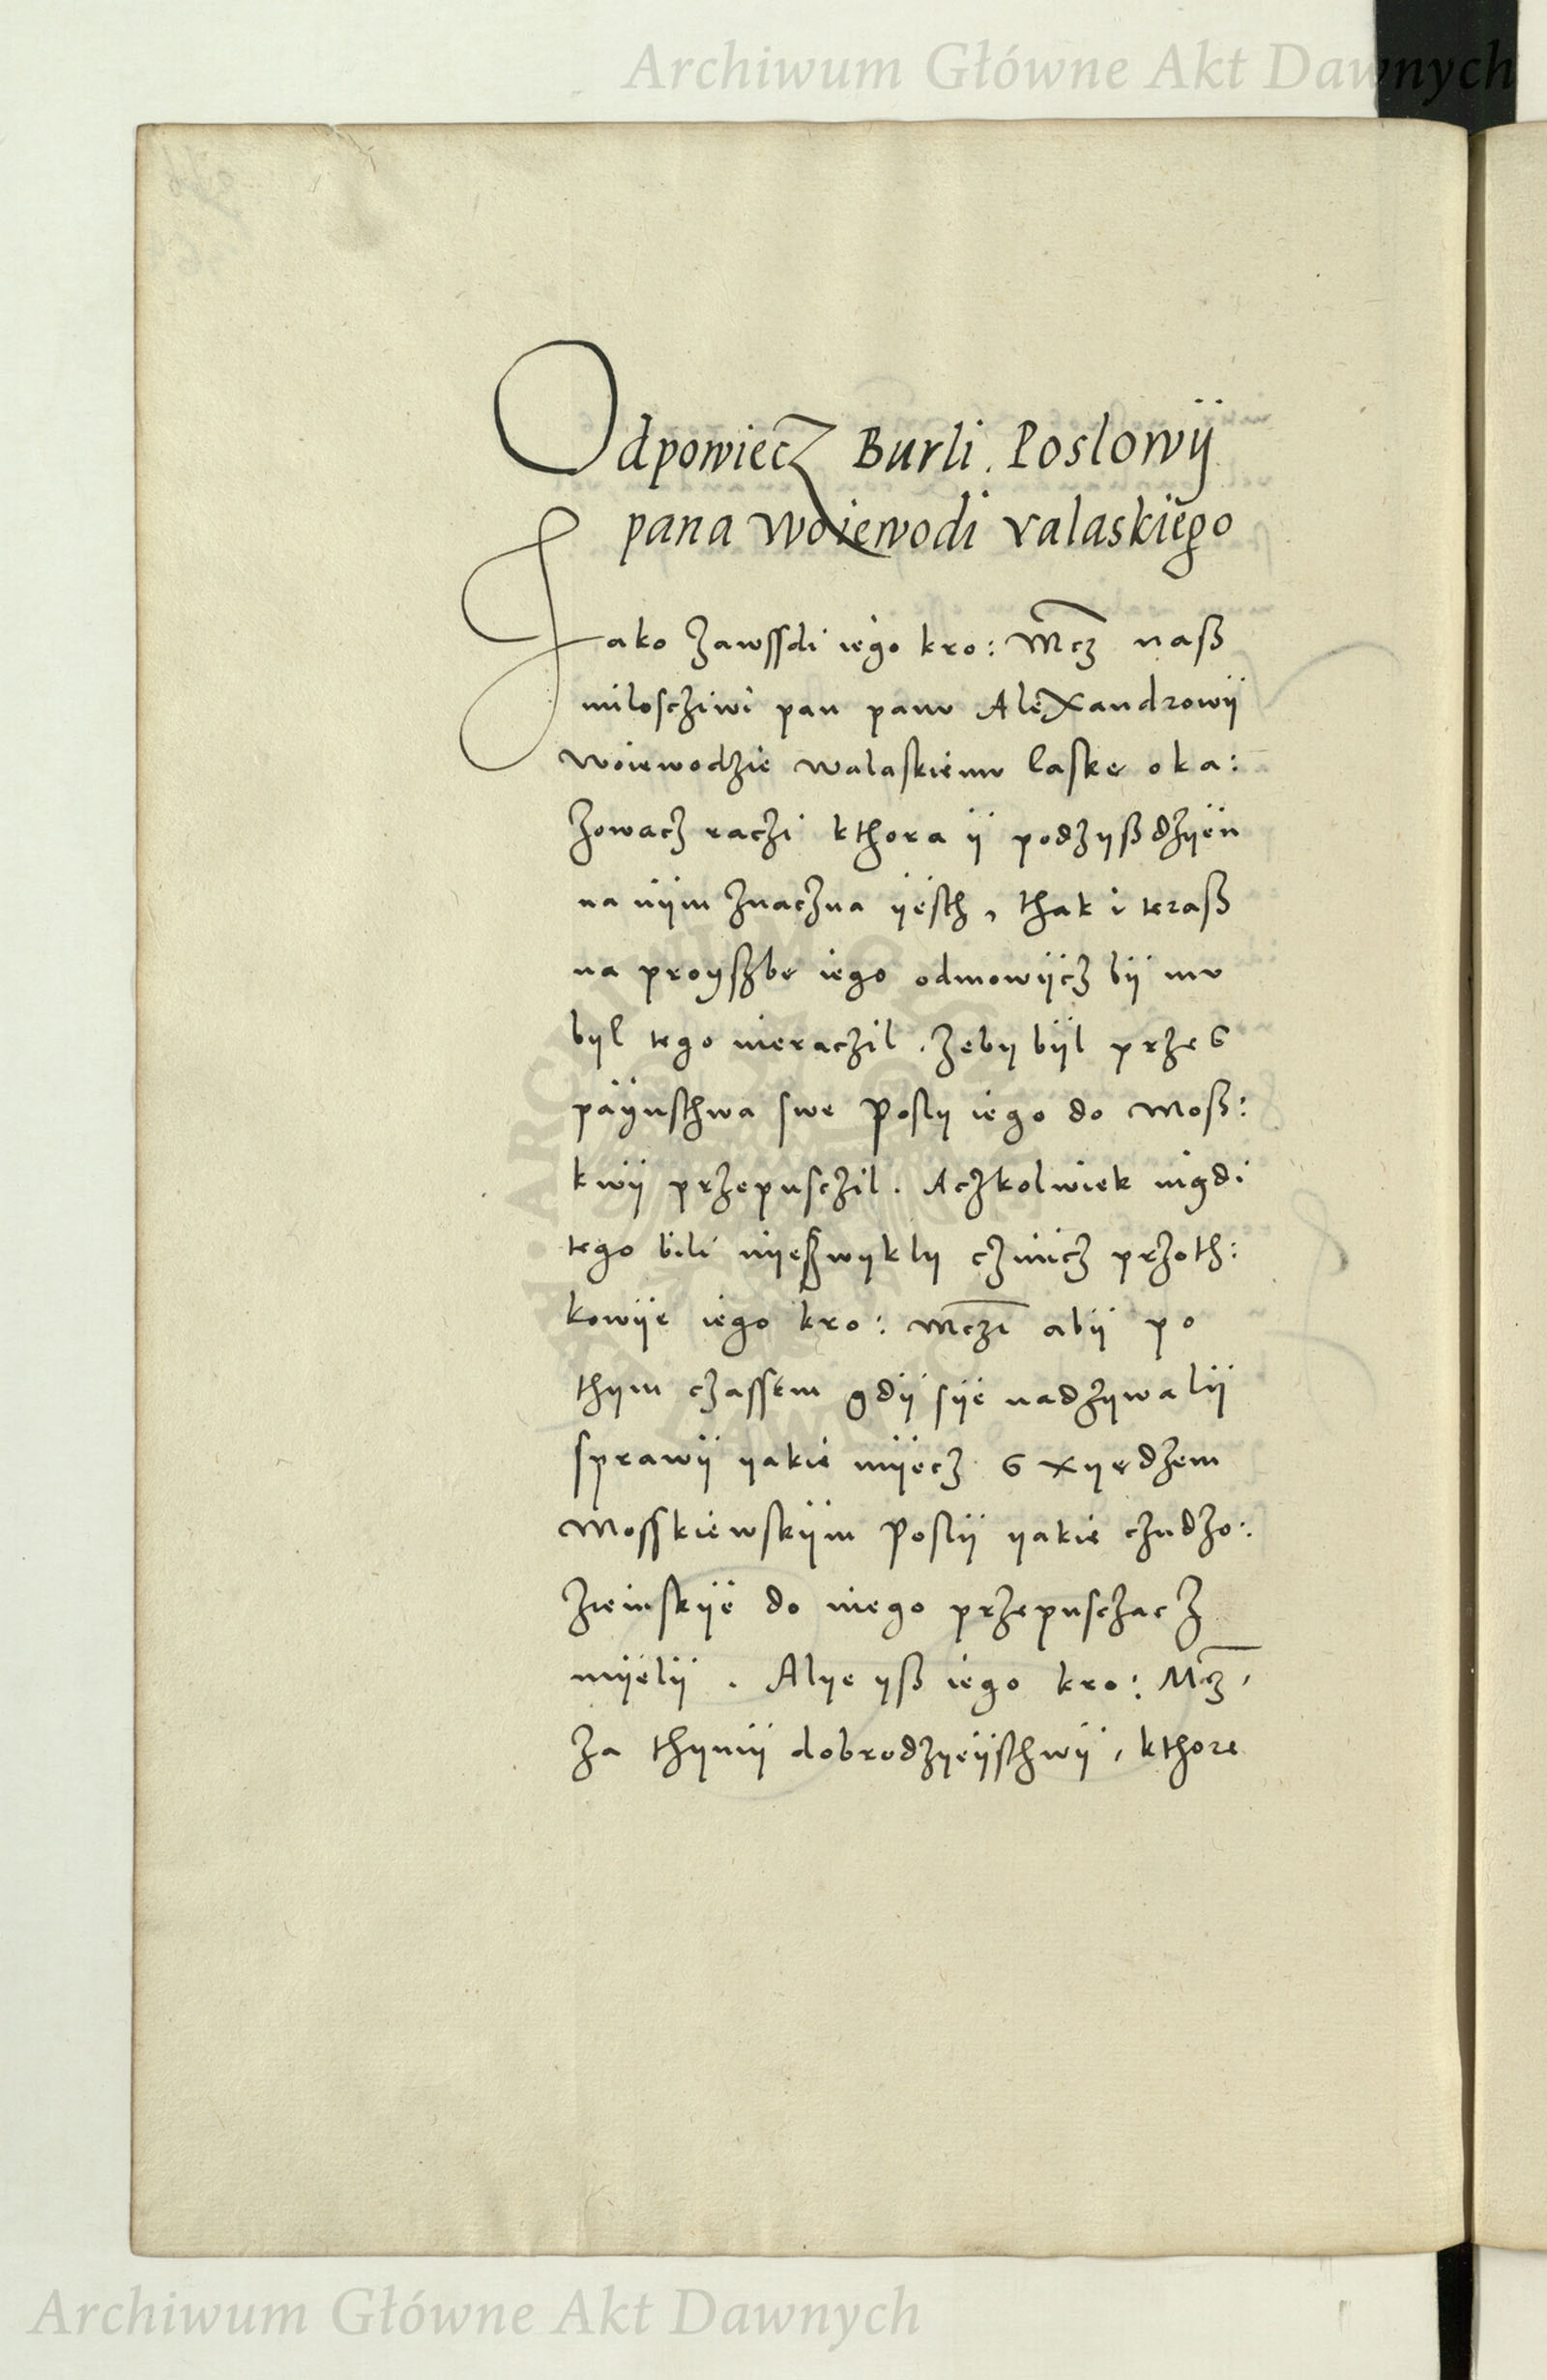 Archiwum Główne Akt Dawnych
Odpowiecz Burli. Poslowij
pana Woiewodi Valaskiego
Jako zawssdi iego kro: Mcz naß
milosciziwi pan panu Alexandrowij
woiewodzie walaskiemu laske oka:
zowacz raczi kthora ij podzyßdzyen
na nijm znaczna ijesth, thak i teraß
na proyszbe iego odmowijcz bij mu
byl tego nieraczil. zeby bijl prze6
paynsthwa swe Posly iego do Moß:
kwij przepusczil. Aczkolwiek nigdi
tego bili nijeßwykly czinicz przoth:
kowije iego kro: Mczi abij po
thym czassem gdij sije nadzywalij
sprawij yakie mijecz 6 xyędzem
Mosskiewskijm Poslij yakie chudzo:
ziemskije do niego przepusczacz
mijelij. Alye yß iego kro: Mcz,
za thymij dobrodzyeijsthwij, kthore
ARCHIWUM
DAWNYCH
Archiwum Główne Akt Dawnych